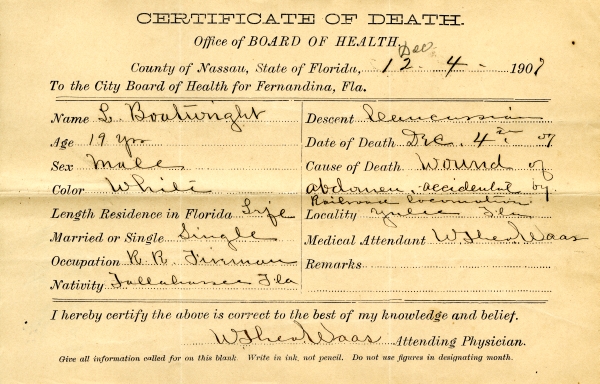 CERTIFICATE OF DEATH.
Office of BOARD OF HEALTH,
Dec
County of Nassau, State of Florida, 12 4 - 1907
To the City Board of Health for Fernandina, Fla.
Name L. Boatwright
Age 19 yrs
Sex Male
Color White
Length Residence in Florida Life
Married or Single Single
Occupation R. R. Fireman
Nativity Tallahassee Fla
Descent Caucussian
Date of Death Dec. 4 07
Cause of Death Wound of
abdomen, accidental by
Railroad locomotive
Locality Yulee Fla
Medical Attendant W Theo Waas
Remarks
I hereby certify the above is correct to the best of my knowledge and belief.
W Theo Waas Attending Physician.
Give all information called for on this blank. Write in ink, not pencil. Do not use figures in designating month.